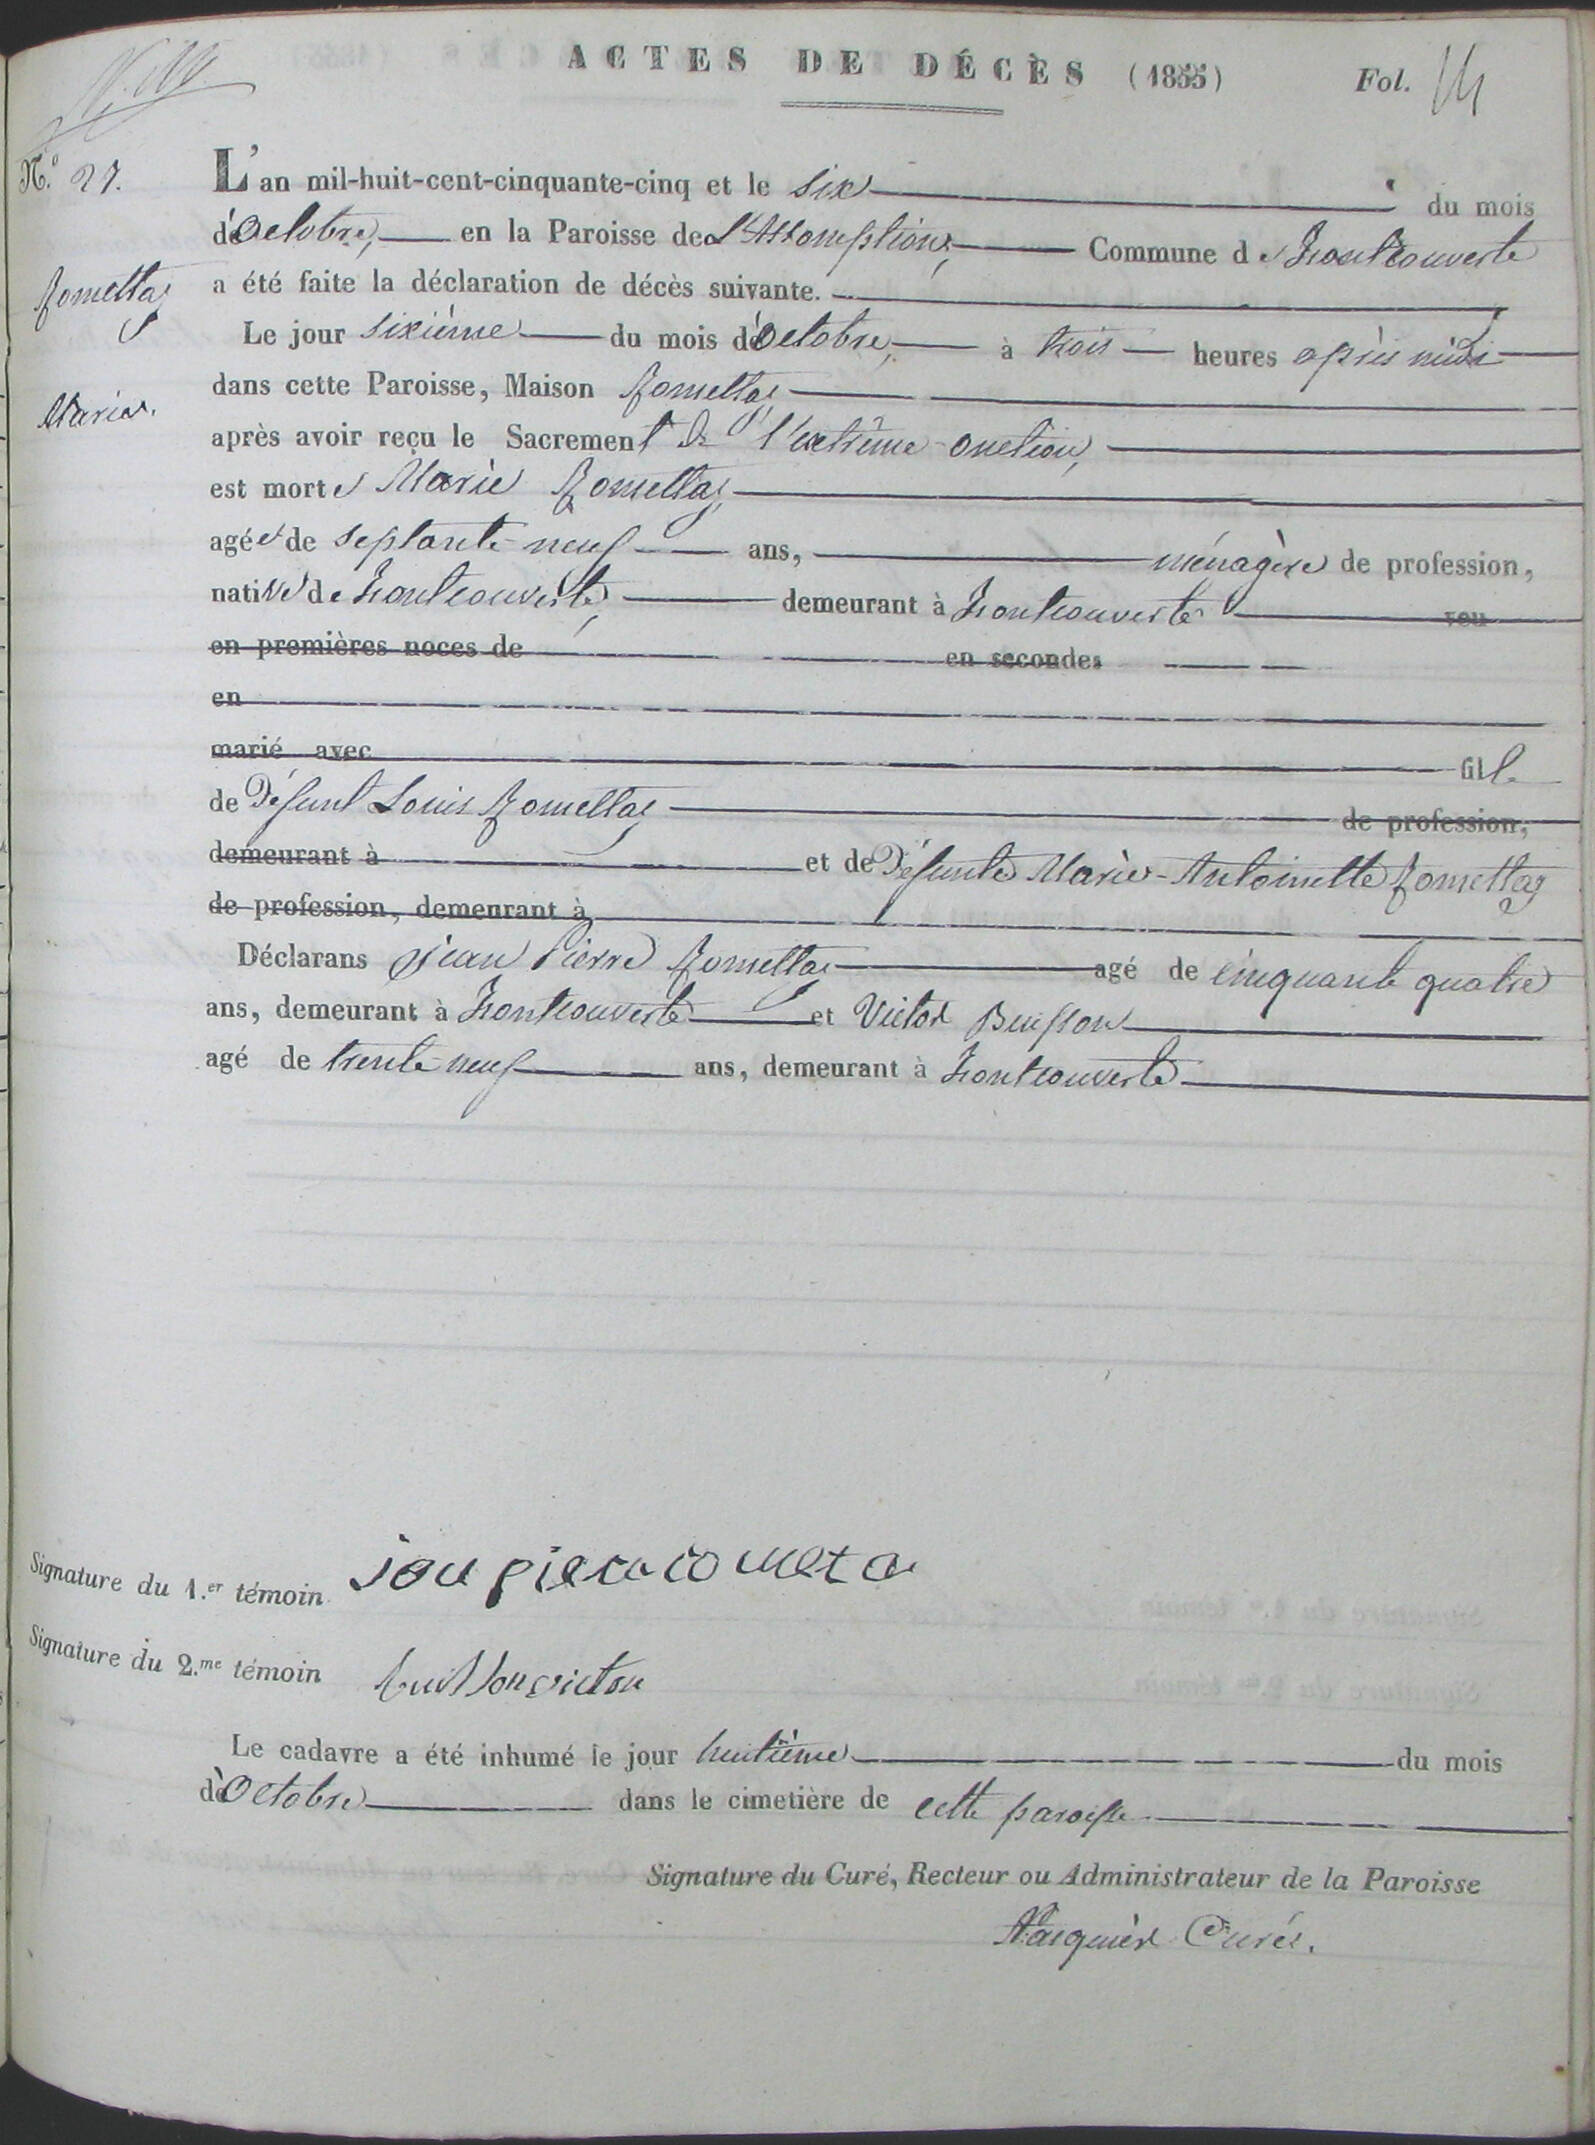 ACTES DE DÉCÈS (1855) Fol. 14
N.º 27.
L'an mil-huit-cent-cinquante-cinq et le six du mois
d'Octobre, en la Paroisse de L'Assomption, Commune de Montcouverte
Romettaz
a été faite la déclaration de décès suivante.
Le jour sixième du mois d'Octobre, à trois heures après midi
dans cette Paroisse, Maison Romettaz
Marie.
après avoir reçu le Sacrement de l'extrême-onction,
est morte Marie Romettaz
agée de septante-neuf ans, ménagère de profession,
native de Montcouverte, demeurant à Montcouverte veu
en premières noces de en secondes
en
marié avec fille
de Défunt Louis Romettaz de profession,
demeurant à et de Défunte Marie-Antoinette Romettaz
de profession, demeurant à
Déclarans Jean Pierre Romettaz agé de cinquante quatre
ans, demeurant à Montcouverte et Victor Buisson
agé de trente-neuf ans, demeurant à Montcouverte
Signature du 1.er témoin jan pierre rometa
Signature du 2.me témoin buisson victor
Le cadavre a été inhumé le jour huitième du mois
d'Octobre dans le cimetière de cette paroisse
Signature du Curé, Recteur ou Administrateur de la Paroisse
Curé.